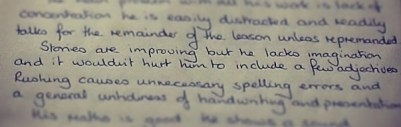 with all his work is lack of
concentration he is easily distracted and readily
talks for the remainder of the lesson unless repremanded.
Stories are improving but he lacks imagination
and it wouldn't hurt him to include a few adjectives
Rushing causes unnecessary spelling errors and
a general untidiness of handwriting and presentation
His maths is good He shows a sound